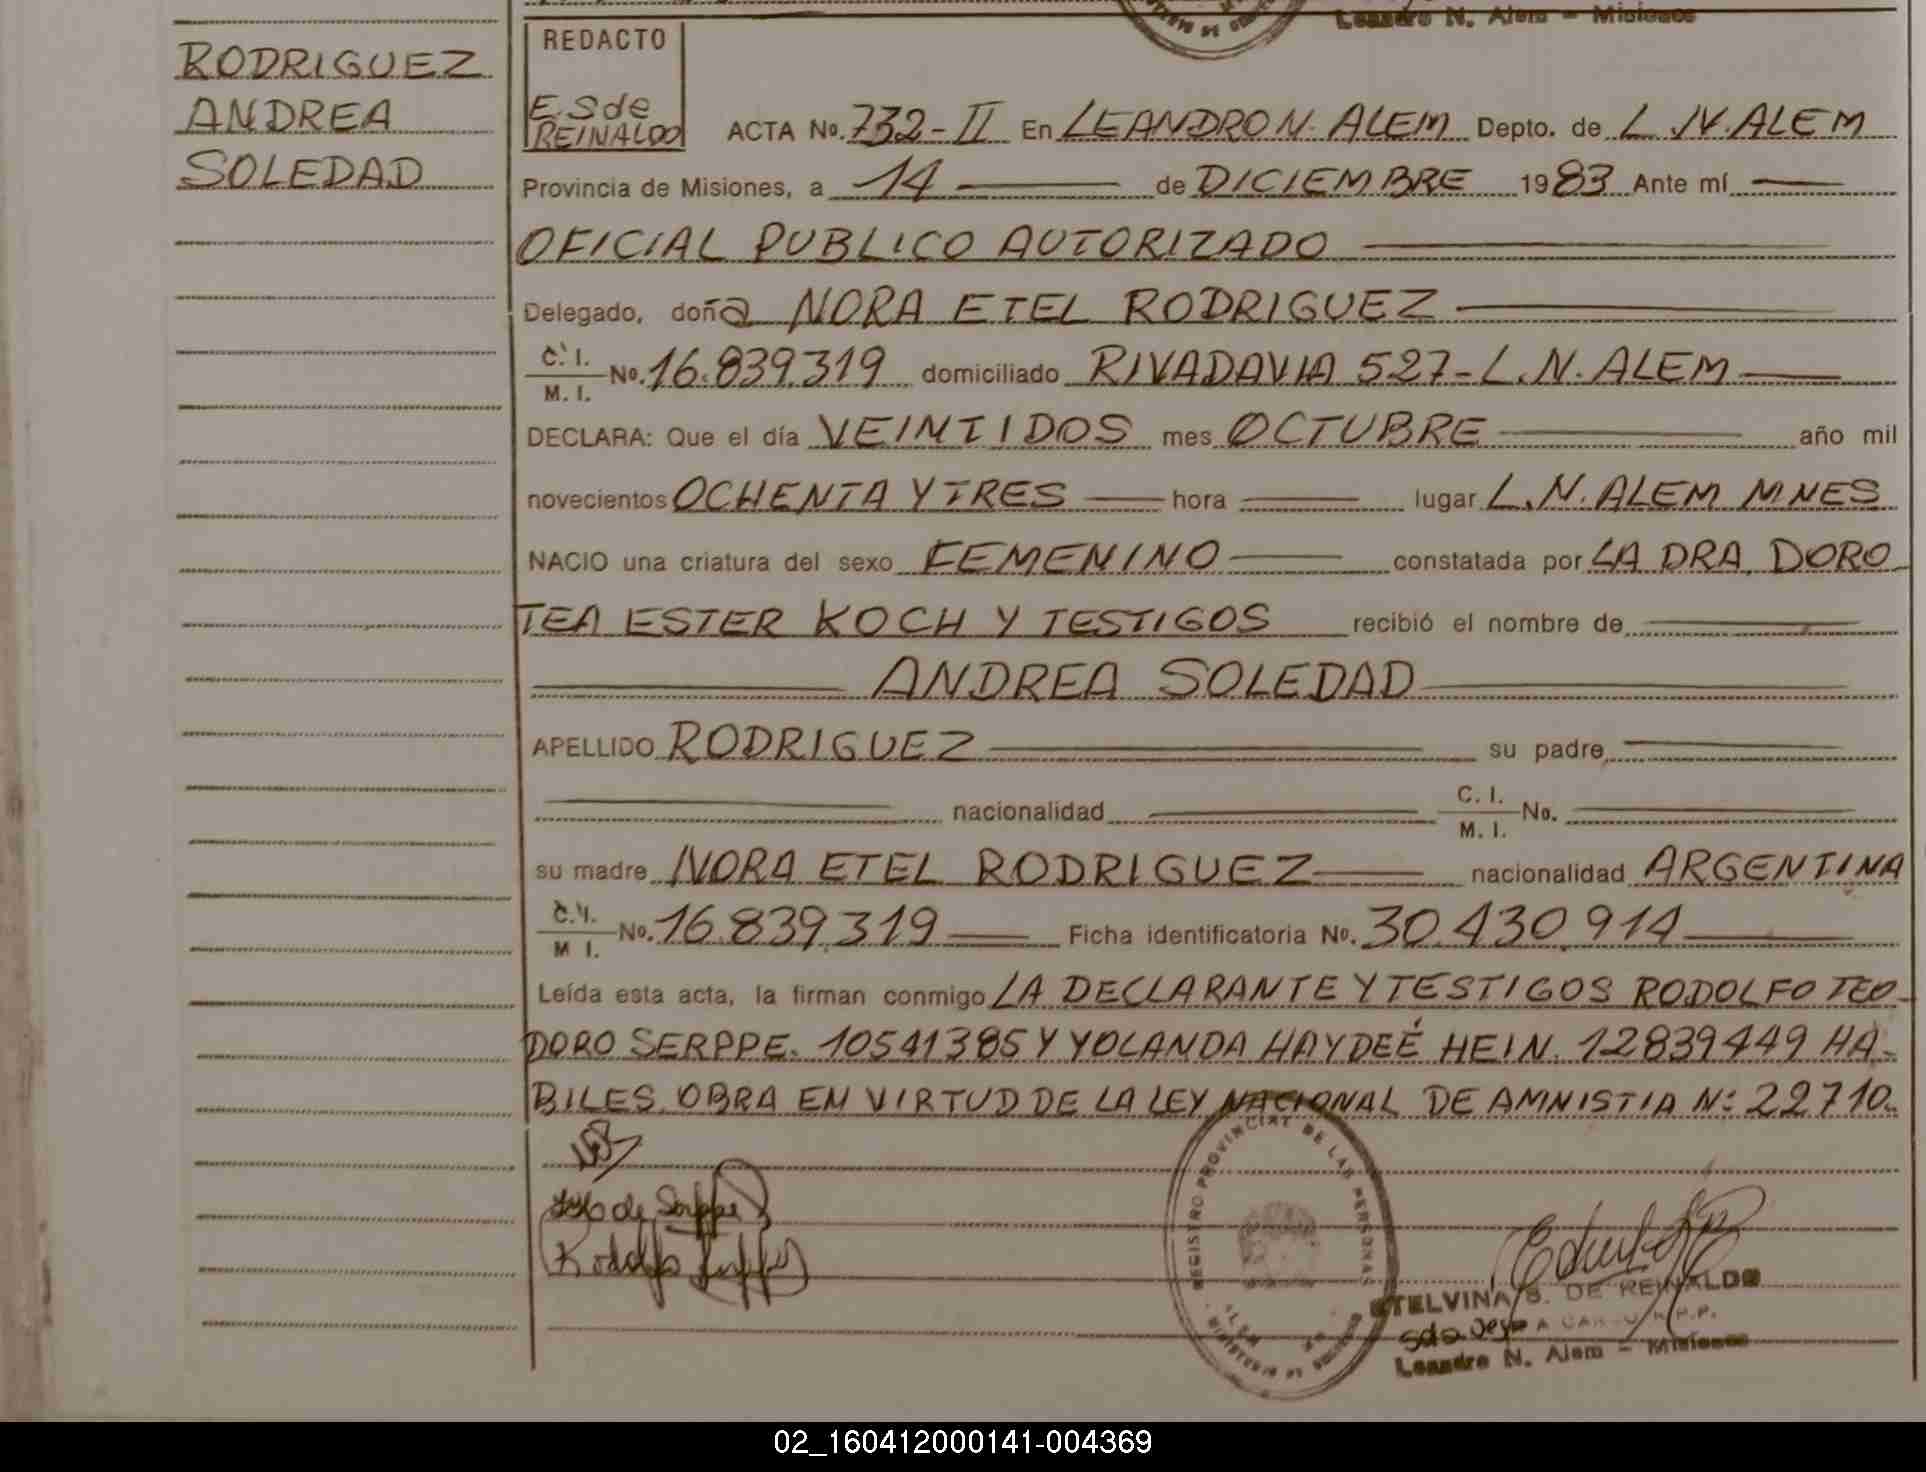 Leandro N. Alem - Misiones
RODRIGUEZ
ANDREA
SOLEDAD
REDACTO
E. S de
REINALDO
ACTA No. 732-II En LEANDRO N. ALEM Depto. de L. N. ALEM
Provincia de Misiones, a 14 de DICIEMBRE 1983 Ante mí
OFICIAL PUBLICO AUTORIZADO
Delegado, doña NORA ETEL RODRIGUEZ
C. I. / M. I. No. 16.839.319 domiciliado RIVADAVIA 527-L.N. ALEM
DECLARA: Que el día VEINTIDOS mes OCTUBRE año mil
novecientos OCHENTA Y TRES hora lugar L.N. ALEM MNES
NACIO una criatura del sexo FEMENINO constatada por LA DRA. DORO
TEA ESTER KOCH Y TESTIGOS recibió el nombre de
ANDREA SOLEDAD
APELLIDO RODRIGUEZ su padre
nacionalidad C. I. / M. I. No.
su madre NORA ETEL RODRIGUEZ nacionalidad ARGENTINA
C. I. / M I. No. 16.839.319 Ficha identificatoria No. 30.430.914
Leída esta acta, la firman conmigo LA DECLARANTE Y TESTIGOS RODOLFO TEO-
DORO SERPPE. 10541385 Y YOLANDA HAYDEÉ HEIN. 12839449 HA-
BILES. OBRA EN VIRTUD DE LA LEY NACIONAL DE AMNISTIA N: 22710.
de Serppe
Rodolfo Serppe
REGISTRO PROVINCIAL DE LAS PERSONAS
ETELVINA S. DE REINALDO
Leandro N. Alem - Misiones
02_160412000141-004369